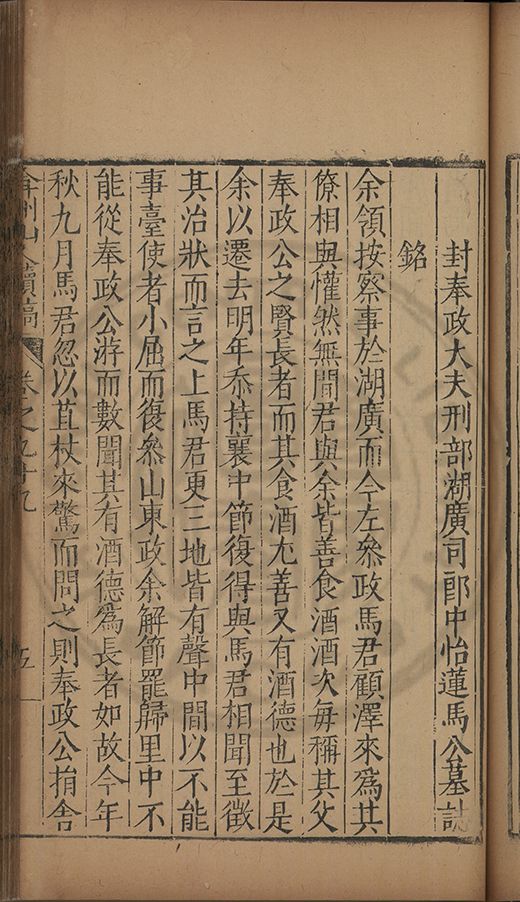 封奉政大夫刑部湖廣司郎中怡蓮馬公墓誌
銘
余領按察事於湖廣而今左叅政馬君顧澤來爲其
僚相與懽然無間君與余皆善食酒酒次每稱其父
奉政公之賢長者而其食酒尤善又有酒德也於是
余以遷去明年忝持襄中節復得與馬君相聞至徵
其治狀而言之上馬君更三地皆有聲中間以不能
事臺使者小屈而復叅山東政余解節罷歸里中不
能從奉政公游而數聞其有酒德爲長者如故今年
秋九月馬君忽以苴杖來驚而問之則奉政公捐舍
弇州山人續稿 卷之九十九 五